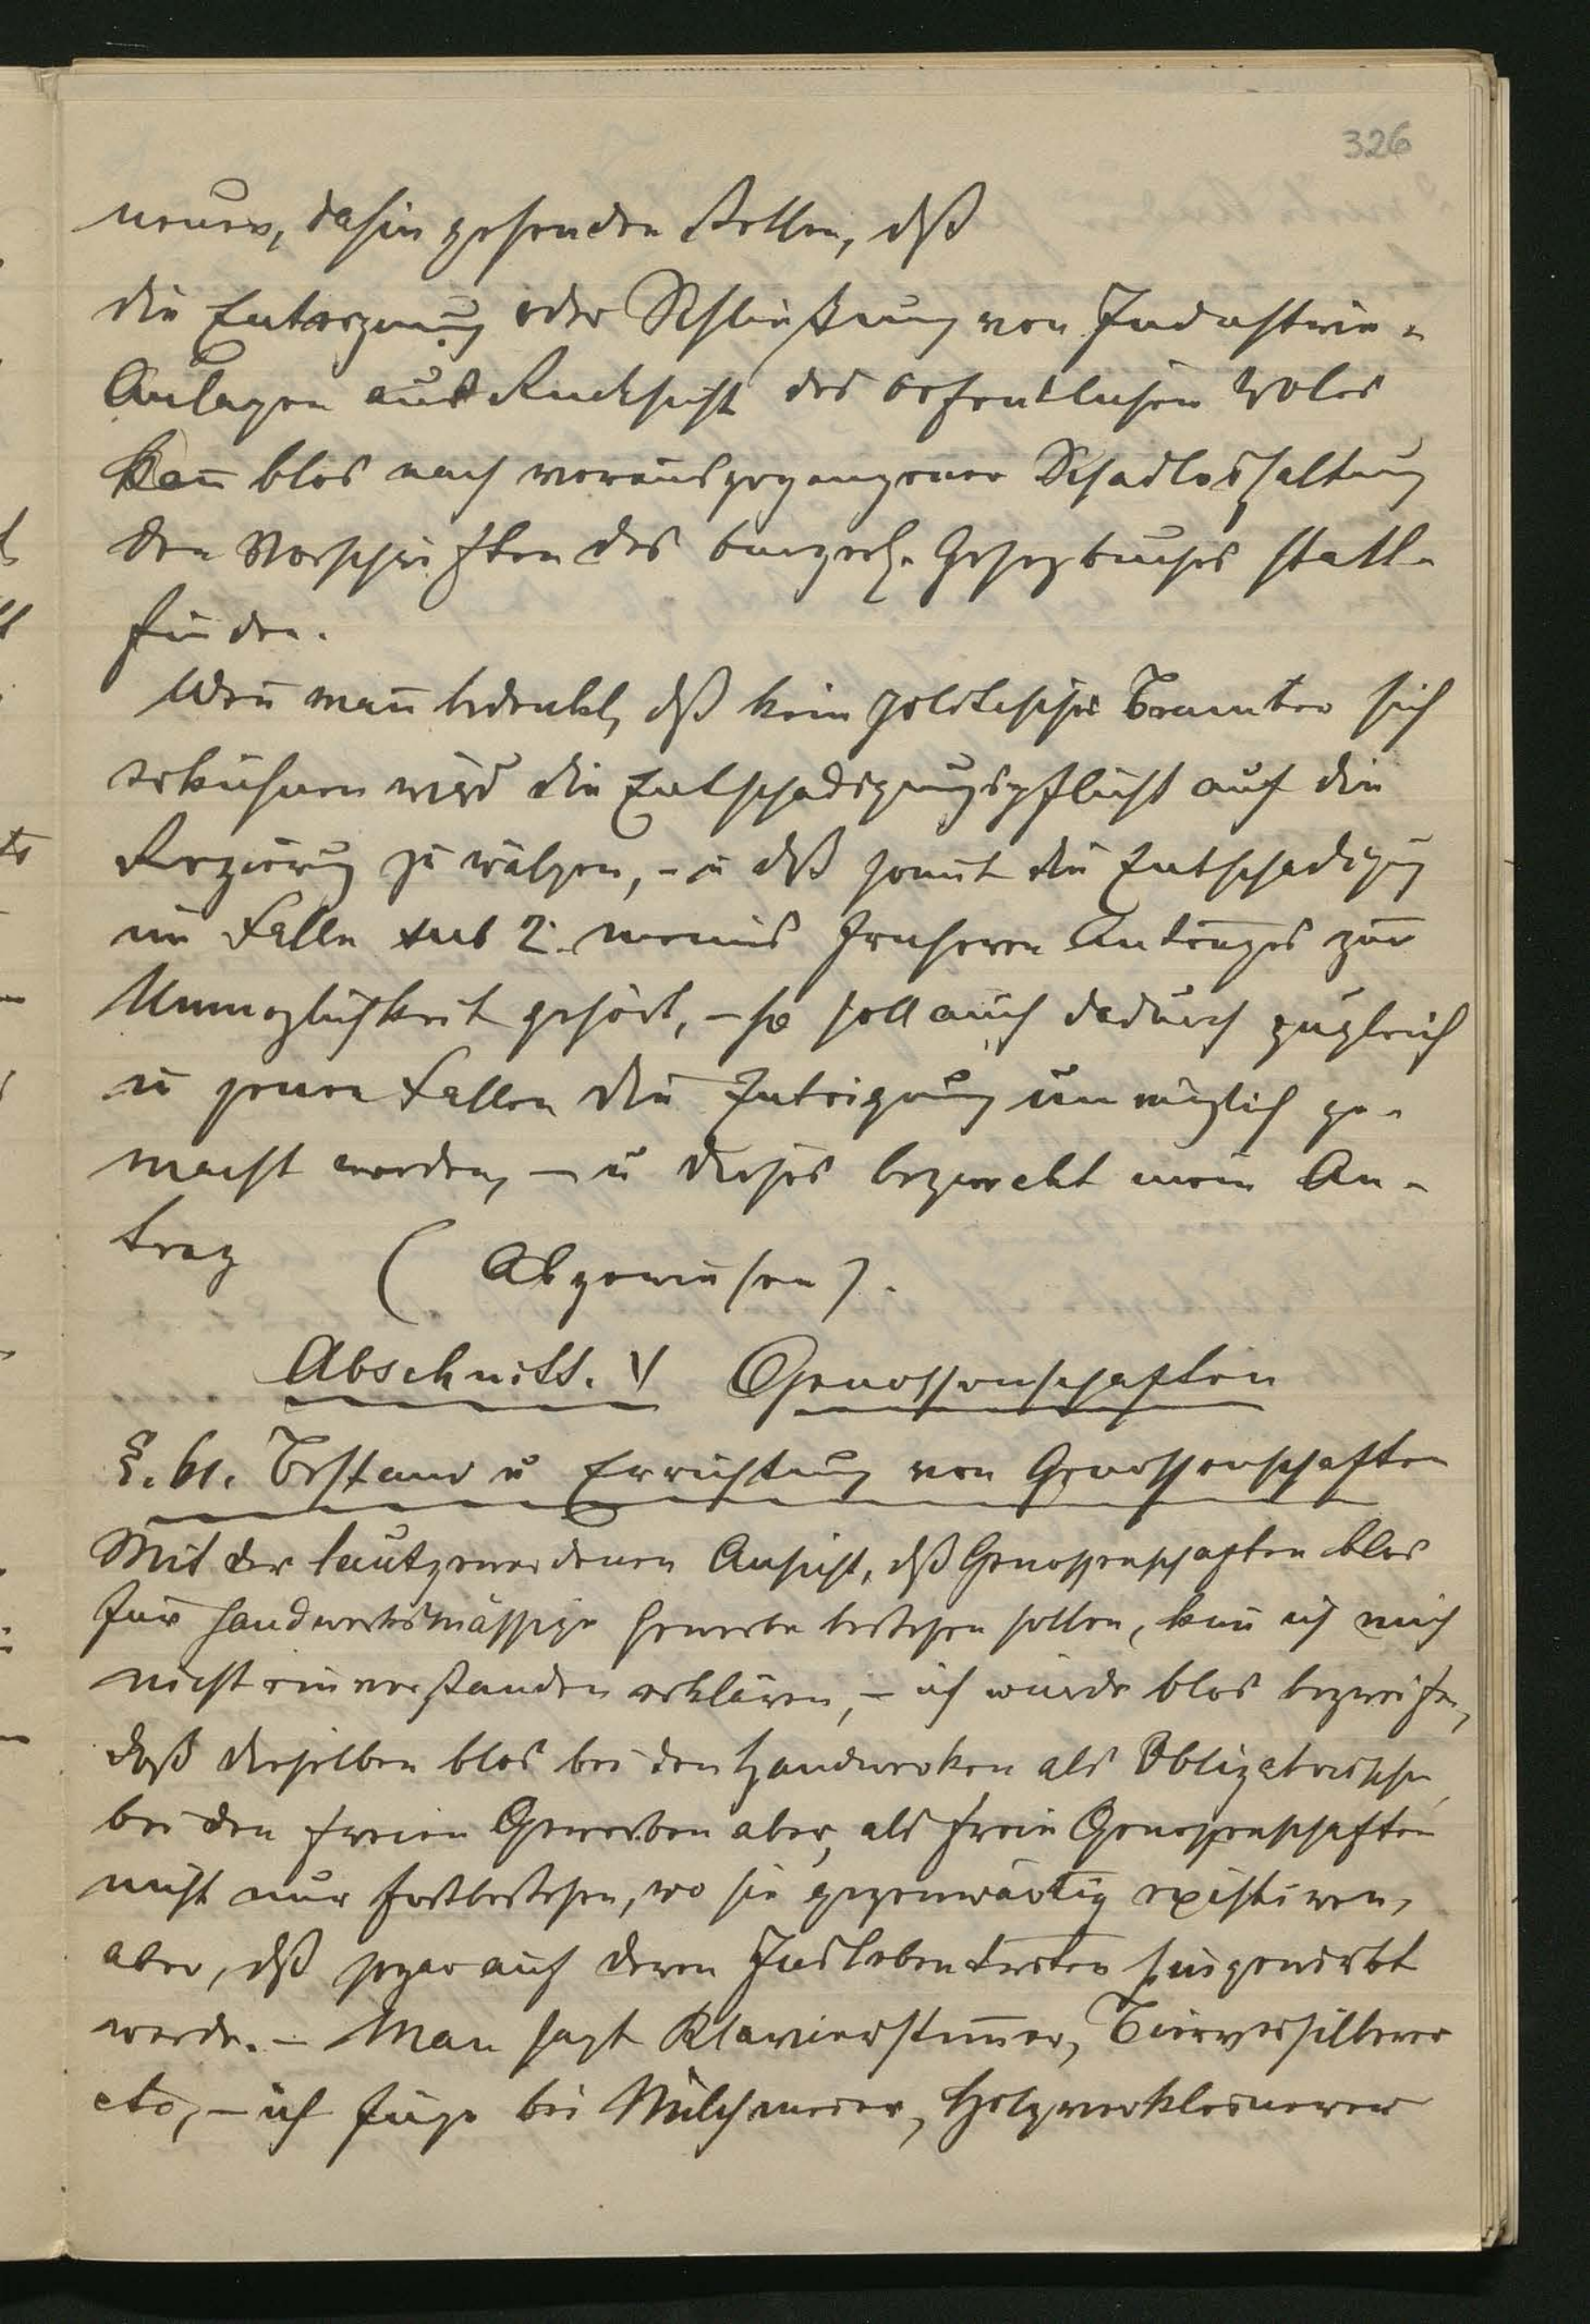 326
neuen, dahin gehenden stellen, dß
die Enteignung oder Schließung von Industrie-
Anlagen aus Rucksicht des oefentlichen Woles
kan̄ blos nach vorausgegangener Schadloshaltung
den Vorschriften des buergerl. Gesezbuches statt-
finden.
Wen̄ man bedenkt, dß kein politischer Beamter sich
erkühnen wird die Entschadigungspflicht auf die
Regierung zu wälzen, - u dß somit die Entschadigung
im Falle sub 2. meines fruheren Antrages zur
Unmoglichkeit gehört, - so soll auch dadurch zugleich
in jenen Fallen die Enteignung unmöglich ge-
macht werden, - u dieses bezweckt mein An-
trag (Abgewiesen).
Abschnitt. V Genossenschaften
§. 61. Bestand u Errichtung von Genossenschaften
Mit der lautgewordenen Ansicht, dß Genossenschaften blos
fur handwerksmässige Gewerbe bestehen sollen, kan̄ ich mich
nicht einverstanden erklären, - ich würde blos
daß dieselben blos bei den Handwerken als Obligatorische,
bei den freien Gewerben aber, als freie Genossenschaften
nicht nur fortbestehen, wo sie gegenwärtig existiren,
aber, dß sogar auf deren Inslebentreten hingewirkt
werde. - Man sagt Klavierstim̄er, Bierversilberer
etc, - ich füge bei Milchmeier, Holzverkleinerer